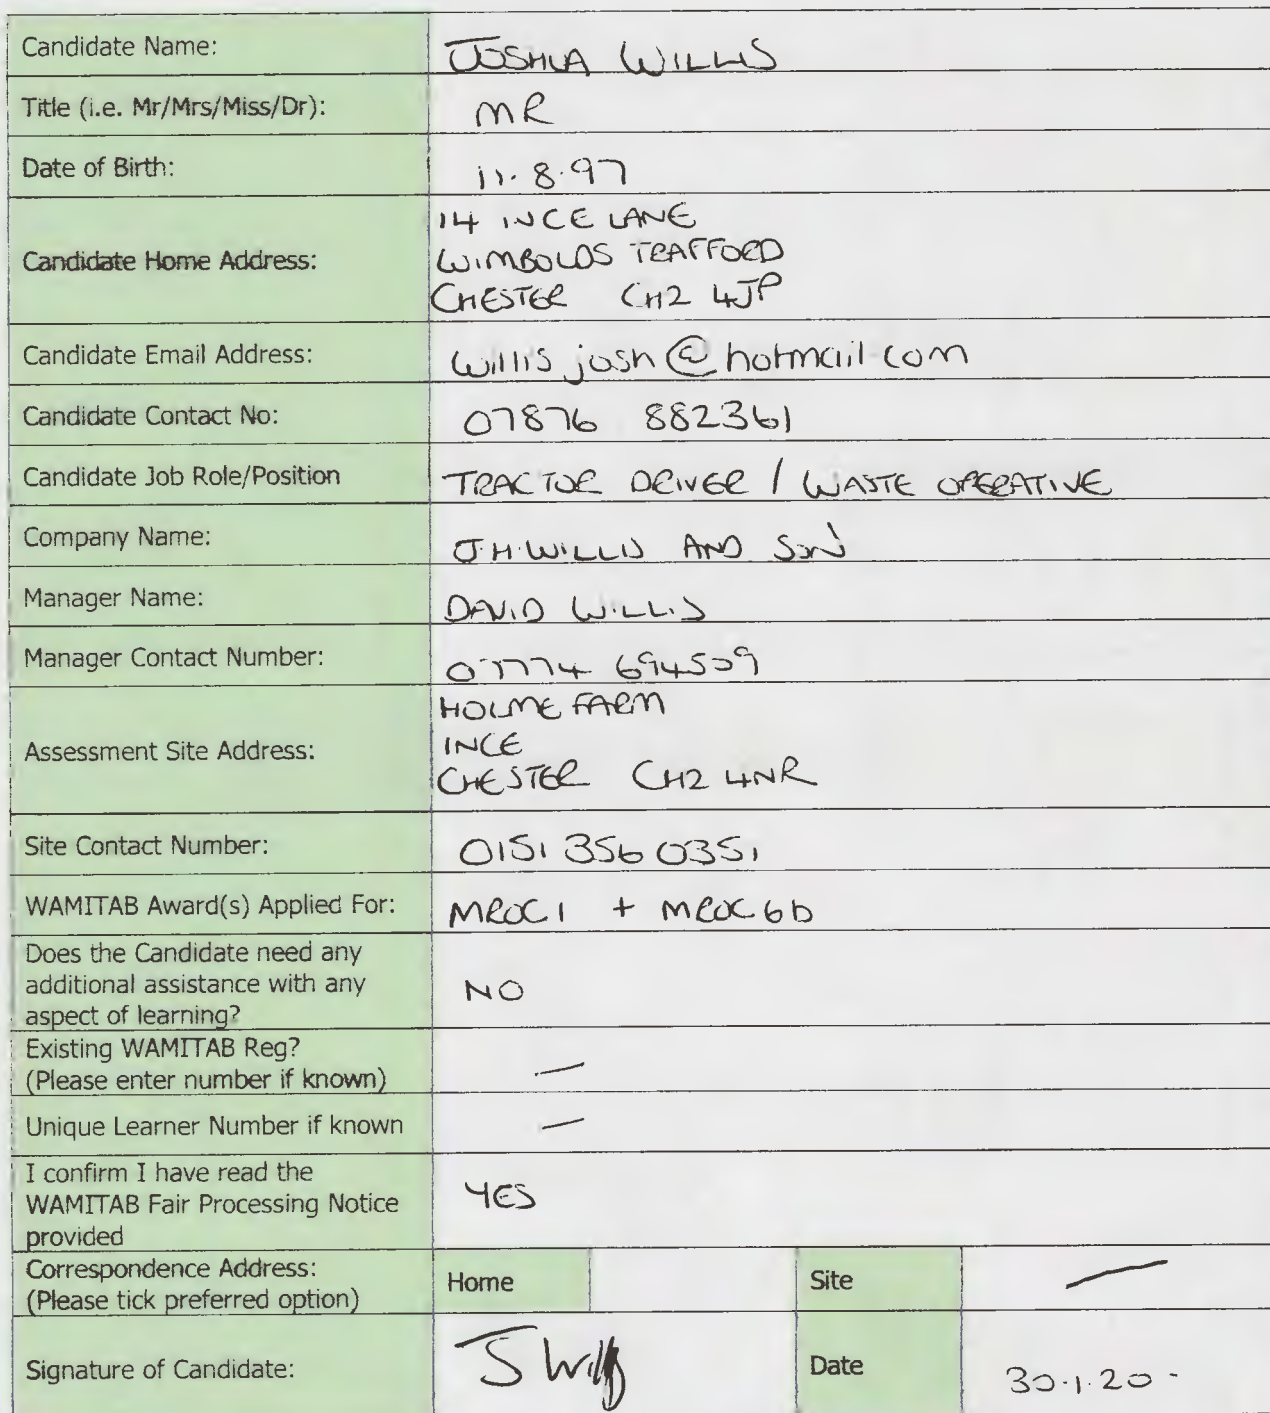 Candidate Name: JOSHUA WILLIS
Title (i.e. Mr/Mrs/Miss/Dr): MR
Date of Birth: 11.8.97
Candidate Home Address:
14 INCE LANE
WIMBOLDS TRAFFORD
CHESTER CH2 4JP
Candidate Email Address: willisjosh@hotmail.com
Candidate Contact No: 07876 882361
Candidate Job Role/Position TRACTOR DRIVER / WASTE OPERATIVE
Company Name: J.H.WILLIS AND SON
Manager Name: DAVID WILLIS
Manager Contact Number: 07774 694509
Assessment Site Address:
HOLME FARM
INCE
CHESTER CH2 4NR
Site Contact Number: 0151 356 0351
WAMITAB Award(s) Applied For: MROC1 + MROC6b
Does the Candidate need any
additional assistance with any
aspect of learning?
NO
Existing WAMITAB Reg?
(Please enter number if known)
—
Unique Learner Number if known —
I confirm I have read the
WAMITAB Fair Processing Notice
provided
YES
Correspondence Address:
(Please tick preferred option)
Home
Site —
Signature of Candidate: J Willis
Date 30.1.20.